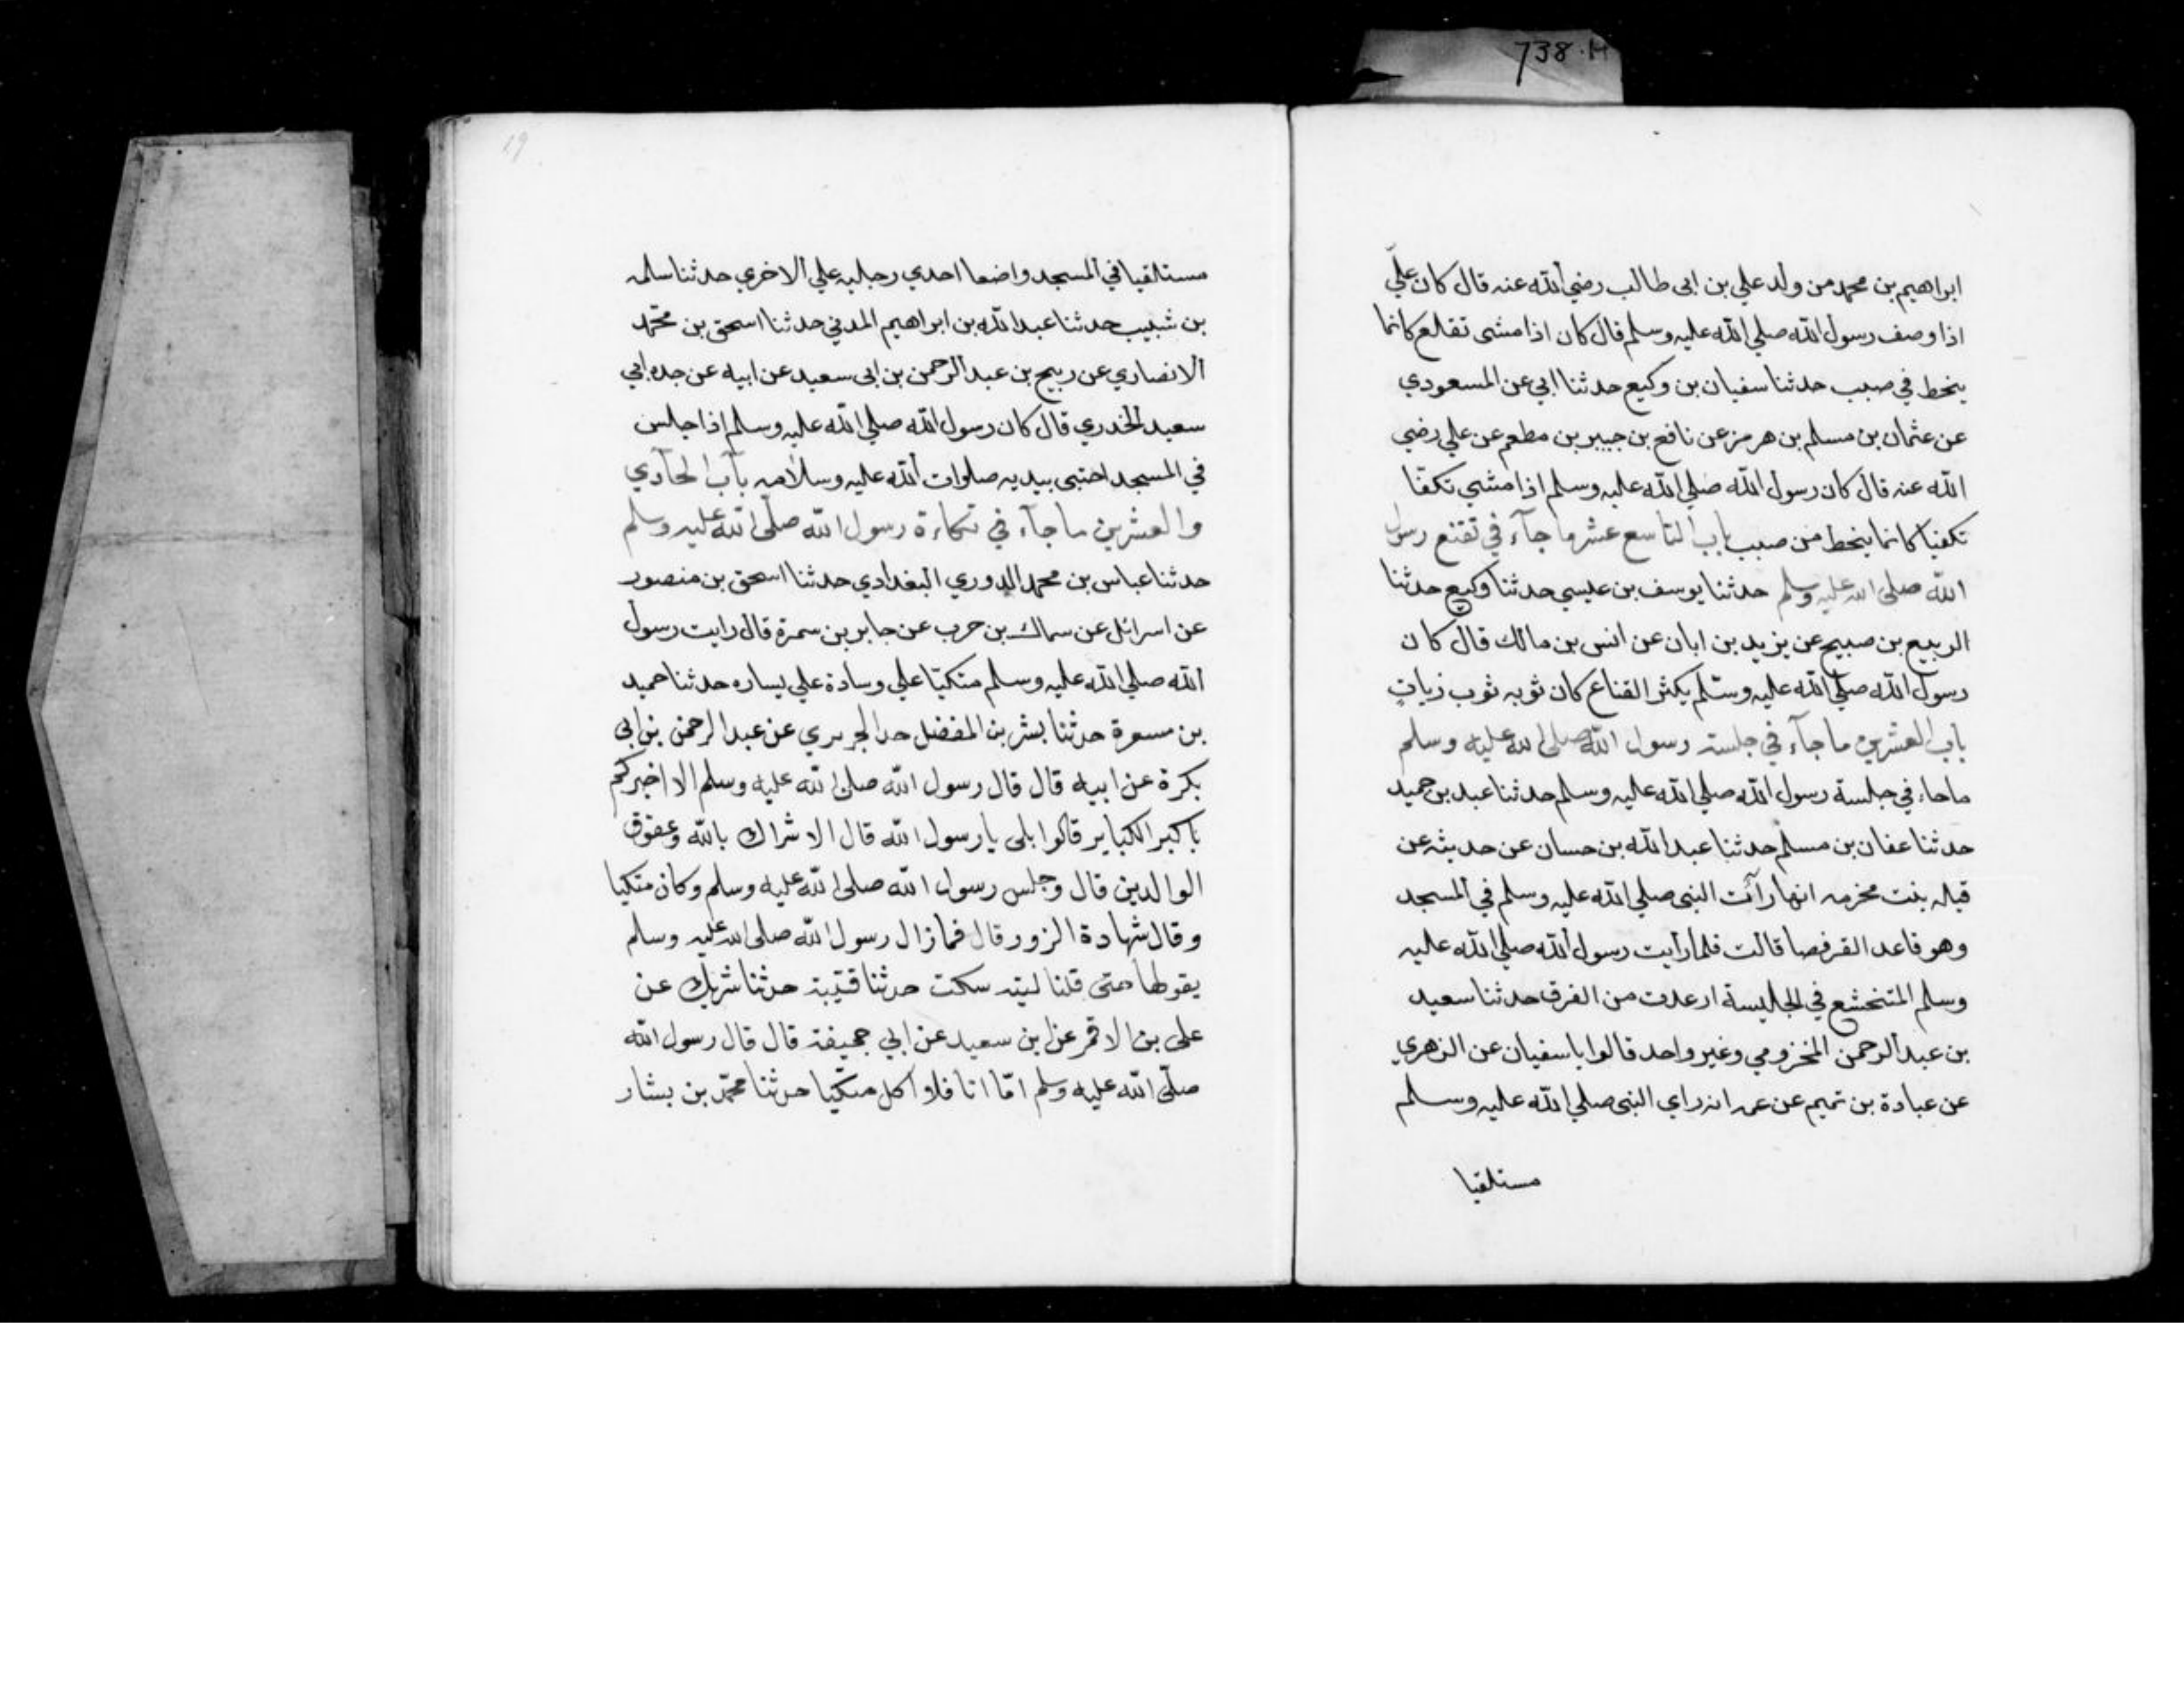 738.H
ابراهيم بن محمد من ولد علي بن ابى طالب رضي الله عنه قال كان عليّ
اذا وصف رسول الله صلي الله عليه وسلم قال كان اذا مشى تقلع كانما
ينحط في صبب حدثنا سفيان بن وكيع حدثنا ابي عن المسعودي
عن عثمان بن مسلم بن هرمز عن نافع بن جبير بن مطعم عن علي رضي
الله عنه قال كان رسول الله صلي الله عليه وسلم اذا مشي تكفا
تكفيا كانما ينحط من صبب باب التاسع عشر ما جآء في تقنع رسول
الله صلى الله عليه وسلم حدثنا يوسف بن عيسي حدثنا وكيع حدثنا
الربيع بن صبيح عن يزيد بن ابان عن انس بن مالك قال كان
رسول الله صلي الله عليه وسلم يكثر القناع كان ثوبه ثوب زيات
باب العشرين ما جآء في جلسته رسول الله صلى الله عليه وسلم
ماجاء في جلسة رسول الله صلي الله عليه وسلم حدثنا عبد بن حميد
حدثنا عفان بن مسلم حدثنا عبد الله بن حسان عن حديثه عن
قيله بنت مخرمه انها رآئت النبى صلي الله عليه وسلم في المسجد
وهو قاعد القرفصا قالت فلما رايت رسول الله صلي الله عليه
وسلم المتخشع في الجليسة ارعدت من الفرق حدثنا سعيد
بن عبد الرحمن المخزومي وغير واحد قالوا ياسفيان عن الزهري
عن عبادة بن تميم عن عمه انه راي النبى صلي الله عليه وسلم
مستلقيا
19
مستلقيا في المسجد واضعا احدي رجليه علي الاخري حدثنا سلمه
بن شبيب حدثنا عبد الله بن ابراهيم المدني حدثنا اسحق بن محمّد
الانصاري عن ربيح بن عبد الرحمن بن ابى سعيد عن ابيه عن جده ابي
سعيد الخدري قال كان رسول الله صلي الله عليه وسلم اذا جلس
في المسجد احتبى بيديه صلوات الله عليه وسلامه باب الحآدي
والعشرين ما جآء في تكاءة رسول الله صلّى الله عليه وسلم
حدثنا عباس بن محمد الدوري البغدادي حدثنا اسحق بن منصور
عن اسرائل عن سماك بن حرب عن جابر بن سمرة قال رايت رسول
الله صلي الله عليه وسلم متكيّا علي وسادة علي يساره حدثنا حميد
بن مسعرة حدثنا بشر بن المفضل حدا الجريري عن عبد الرحمن بن ابى
بكرة عن ابيه قال قال رسول الله صلى الله عليه وسلم الا اخبركم
باكبر الكبايرقالوا بلى يا رسول الله قال الاشراك بالله وعقوق
الوالدين قال وجلس رسول الله صلى الله عليه وسلم وكان متكيا
وقال شهادة الزور قال فمازال رسول الله صلى الله عليه وسلم
يقولها حتى قلنا ليته سكت حدثنا قتيبة حدثنا شريك عن
على بن الاقمر عن ابن سعيد عن ابي جحيفة قال قال رسول الله
صلّى الله عليه وسلم امّا انا فلا اكل متكيا حدثنا محمّد بن بشار